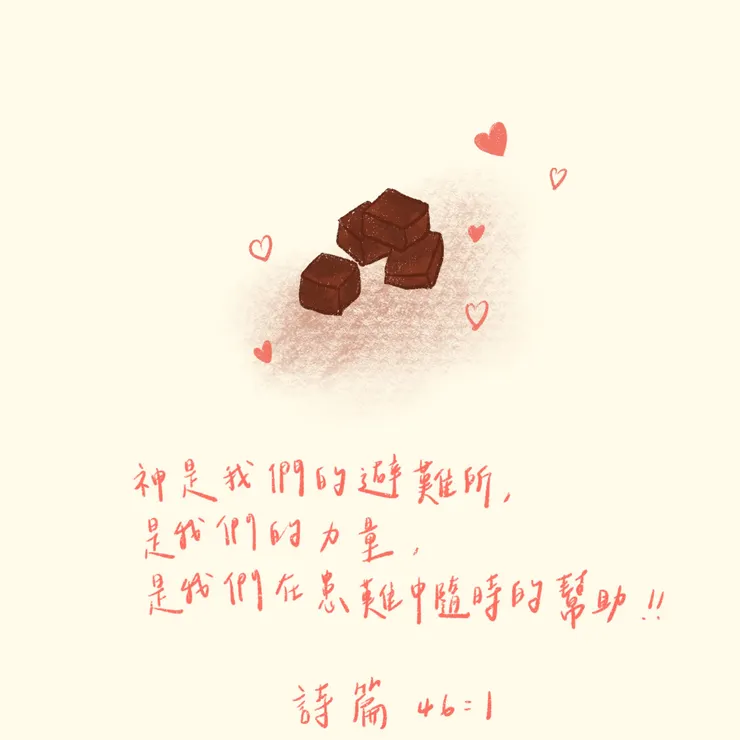 神是我們的避難所,
是我們的力量,
是我們在患難中隨時的幫助!!
詩篇 46:1